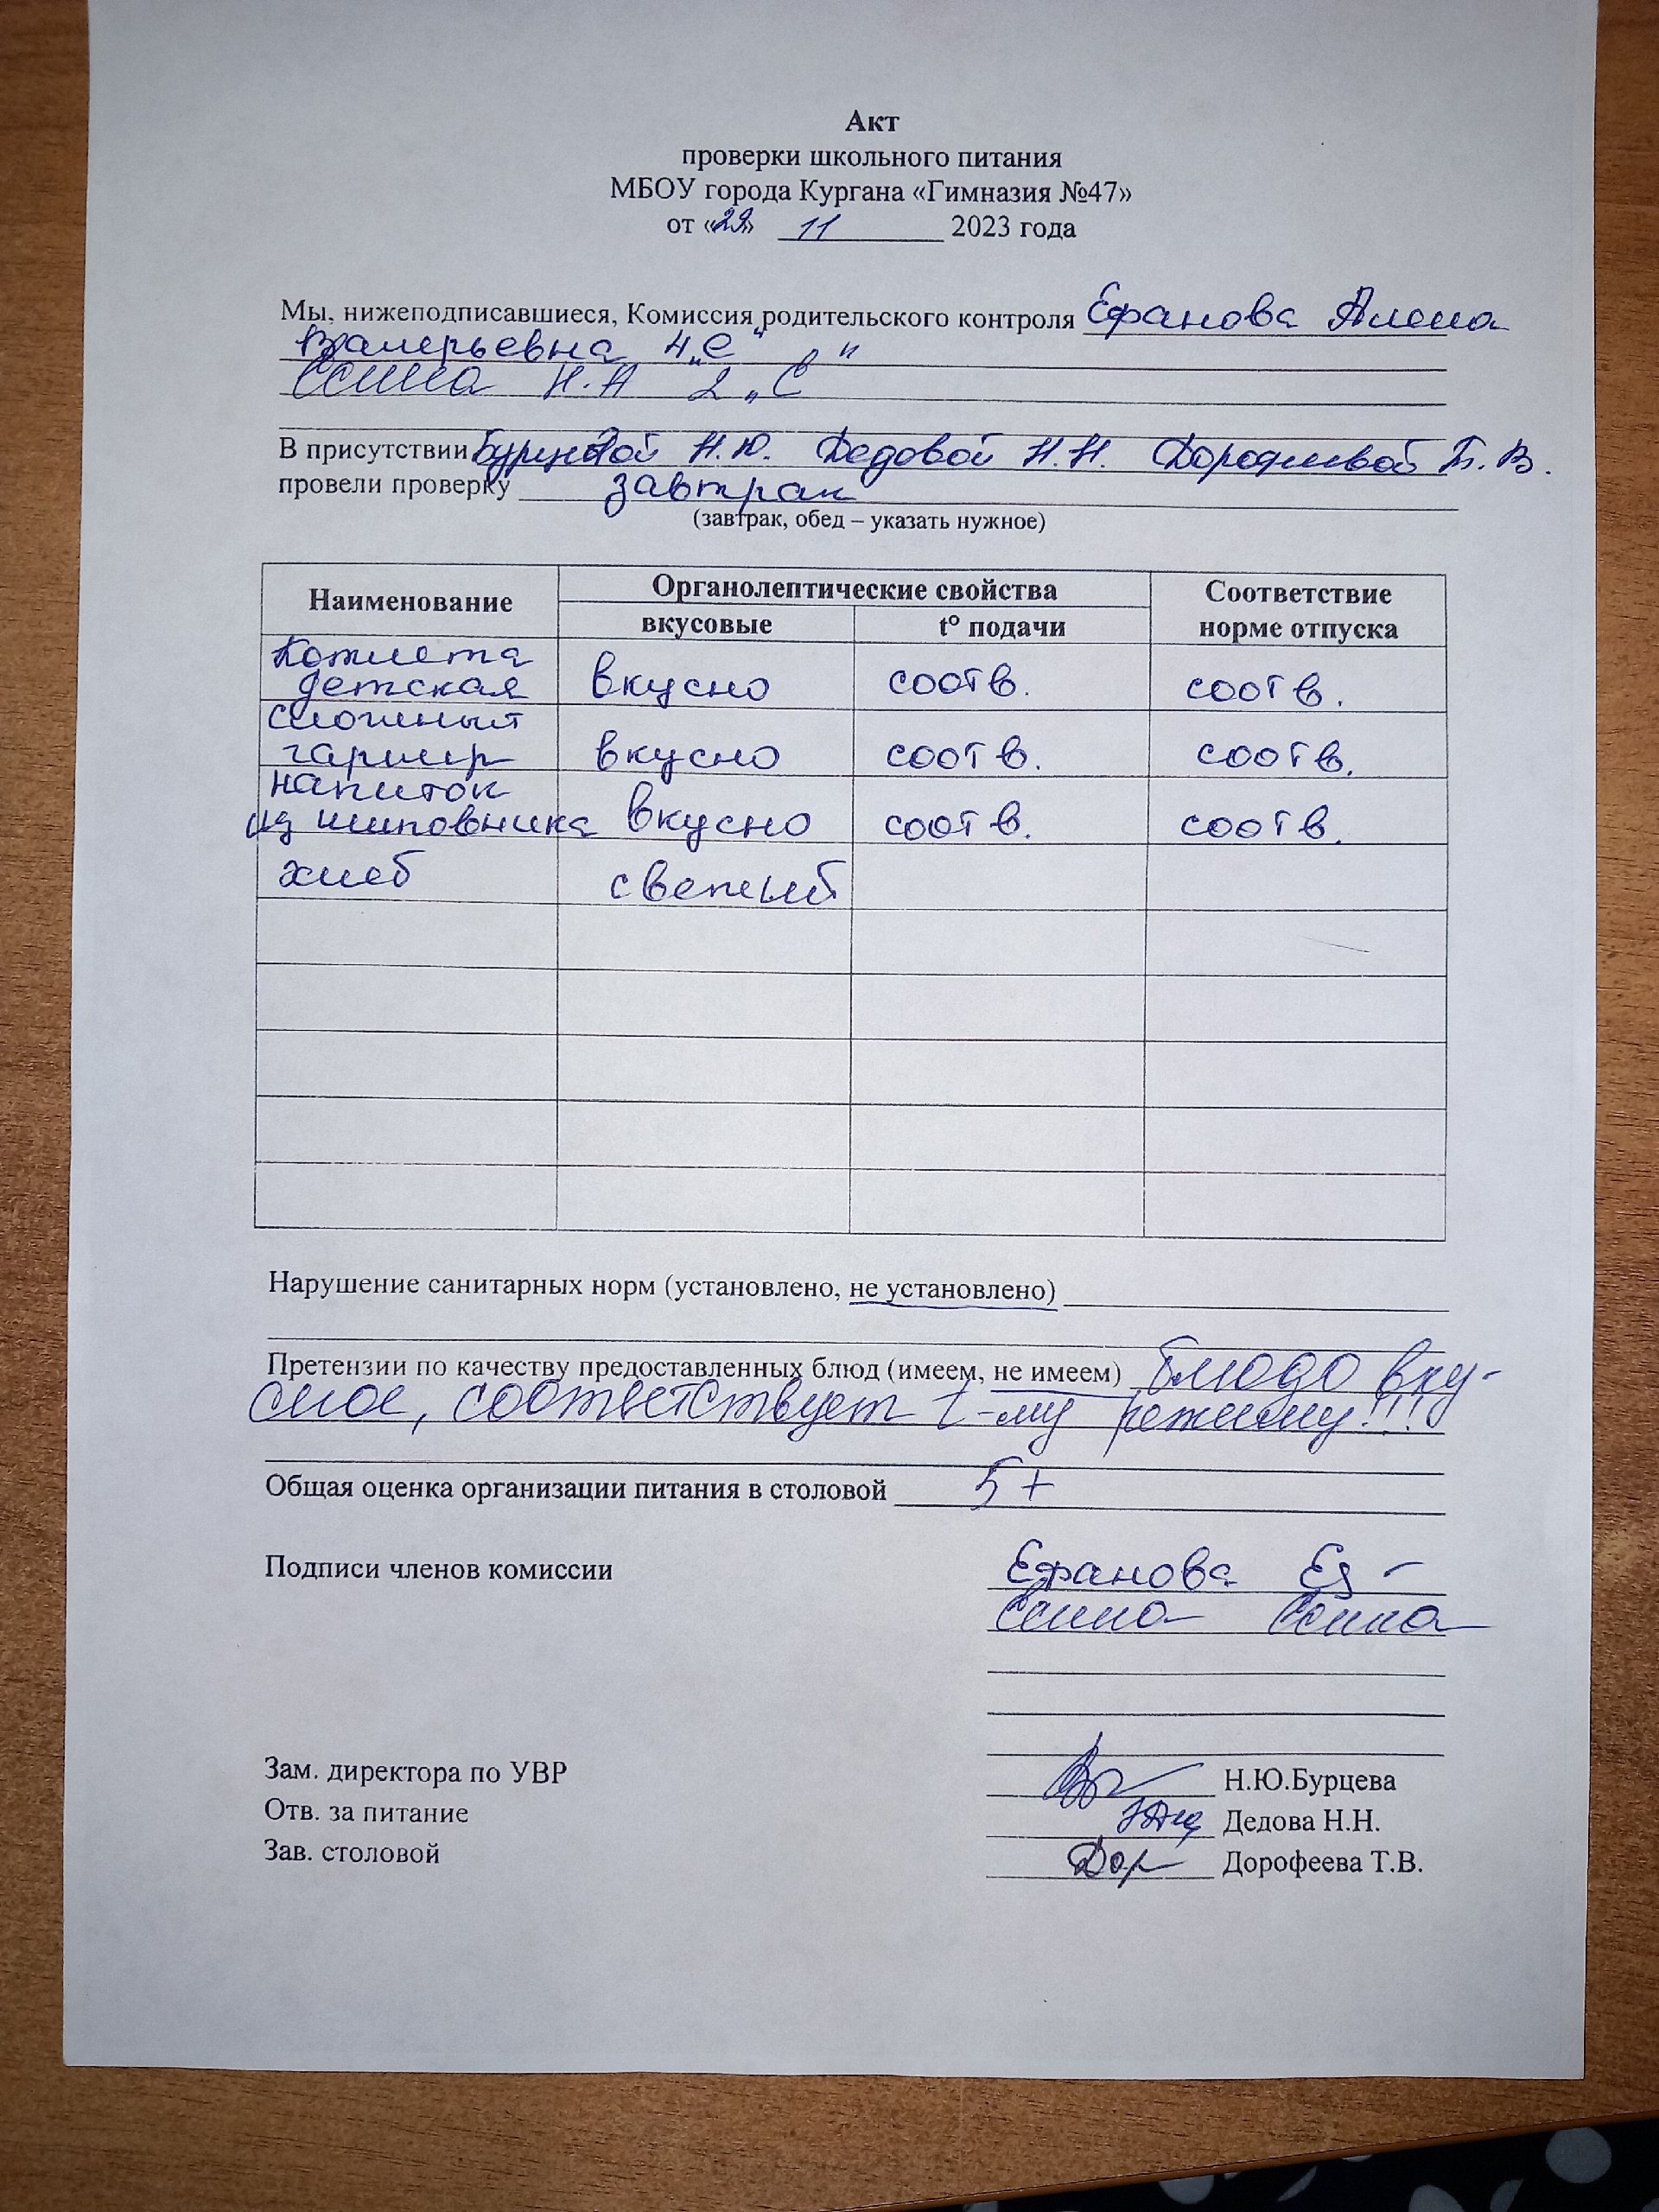 Акт
проверки школьного питания
МБОУ города Кургана «Гимназия №47»
от «29» 11 2023 года
Мы, нижеподписавшиеся, Комиссия родительского контроля Ефанова Алена
Валерьевна 4 „С"
Н.А 2 „С"
В присутствии Бурцевой Н.Ю. Дедовой Н.Н. Дорофеевой Т.В.
провели проверку завтрак
(завтрак, обед – указать нужное)
Наименование Органолептические свойства Соответствие норме отпуска
вкусовые t° подачи
Котлета детская вкусно соотв. соотв.
сложный гарнир вкусно соотв. соотв.
напиток из шиповника вкусно соотв. соотв.
хлеб свежий
Нарушение санитарных норм (установлено, не установлено)
Претензии по качеству предоставленных блюд (имеем, не имеем) блюдо вку-
сное, соответствует t-му режиму!!!
Общая оценка организации питания в столовой 5+
Подписи членов комиссии Ефанова
Зам. директора по УВР Н.Ю.Бурцева
Отв. за питание Дедова Н.Н.
Зав. столовой Дор Дорофеева Т.В.